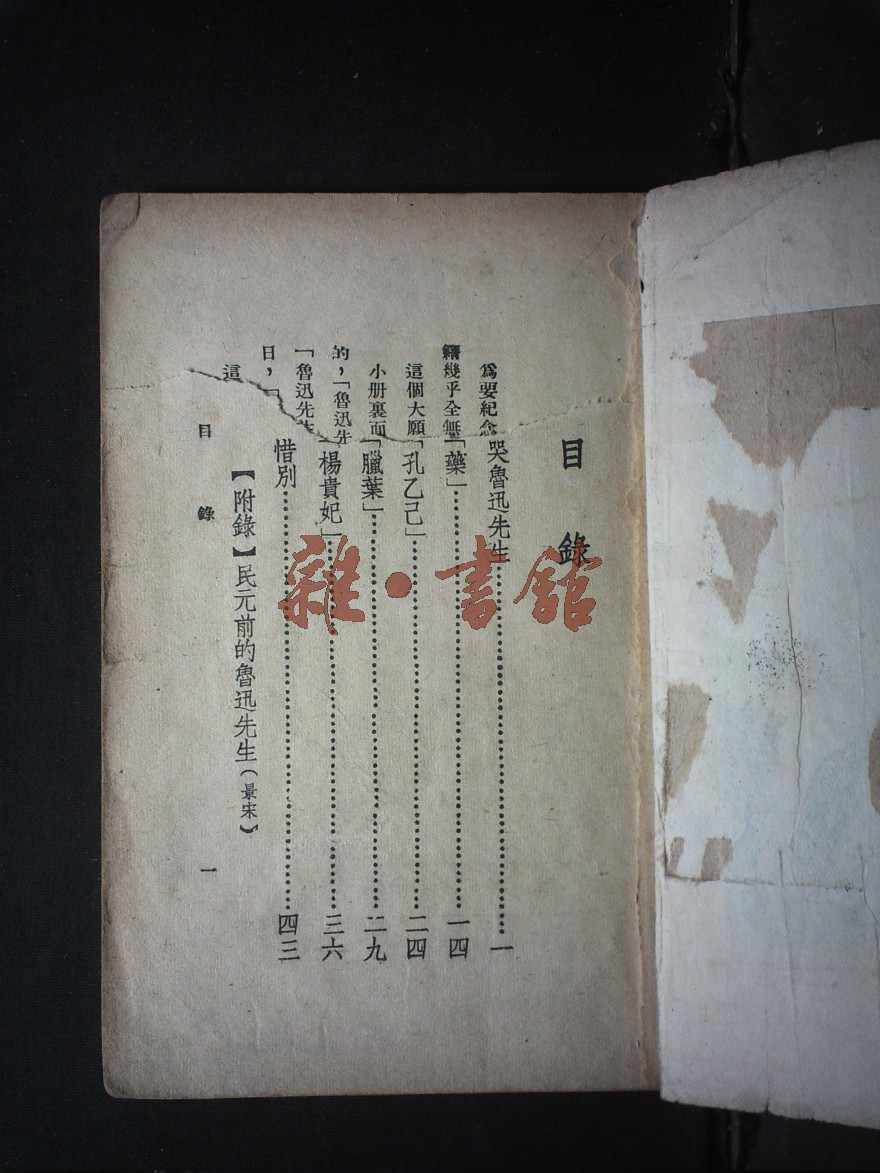 目錄
哭魯迅先生……一
「藥」……一四
「孔乙己」……二四
「臘葉」……二九
「楊貴妃」……三六
惜別……四三
【附錄】民元前的魯迅先生(景宋)
目錄 一
爲要紀念
幾乎全無
這個大願
小册裏面
的,「魯迅先
「魯迅先
日,「
這
雜·書館